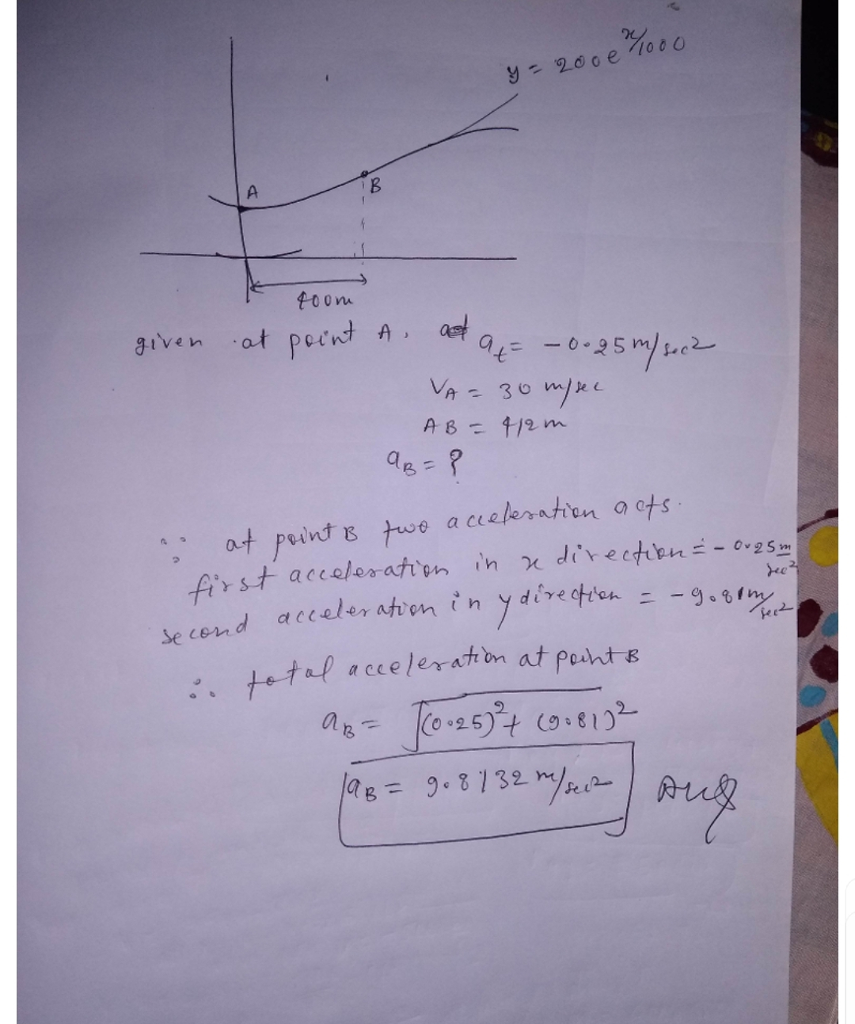 y = 200e^x/1000
A
B
400m
given at point A, at a_t = -0.25 m/sec2
V_A = 30 m/sec
AB = 412m
a_B = ?
∵ at point B two acceleration acts.
first acceleration in x direction = -0.25 m/sec2
second acceleration in y direction = -9.81 m/sec2
∴ total acceleration at point B
a_B = √(0.25)^2 + (9.81)^2
a_B = 9.8132 m/sec2 Ans